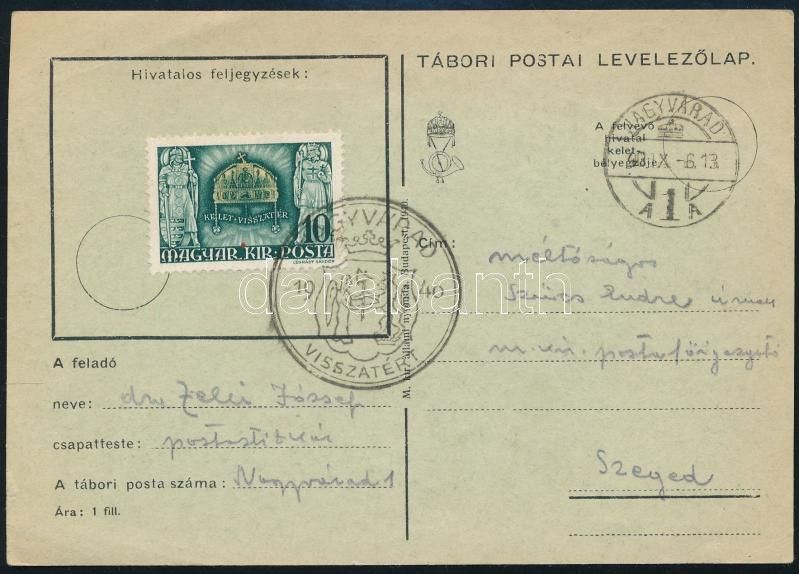 Hivatalos feljegyzések:
TÁBORI POSTAI LEVELEZŐLAP.
A felvevő
hivatal
kelet-
bélyegzője
NAGYVÁRAD
X -6. 13
A 1 A
KELET·VISSZATÉR
10
MAGYAR·KIR·POSTA
LÉGRÁDY SÁNDOR
NAGYVÁRAD
19 40
VISSZATÉRT
darabanth
M. kir. állami nyomda. Budapest, 1940.
Cím:
méltóságos
Szűcs Endre úrnak
m. kir. postafőigazgató
Szeged
A feladó
neve: dr. Zelei József
csapatteste: postatitkár
A tábori posta száma: Nagyvárad 1
Ára: 1 fill.